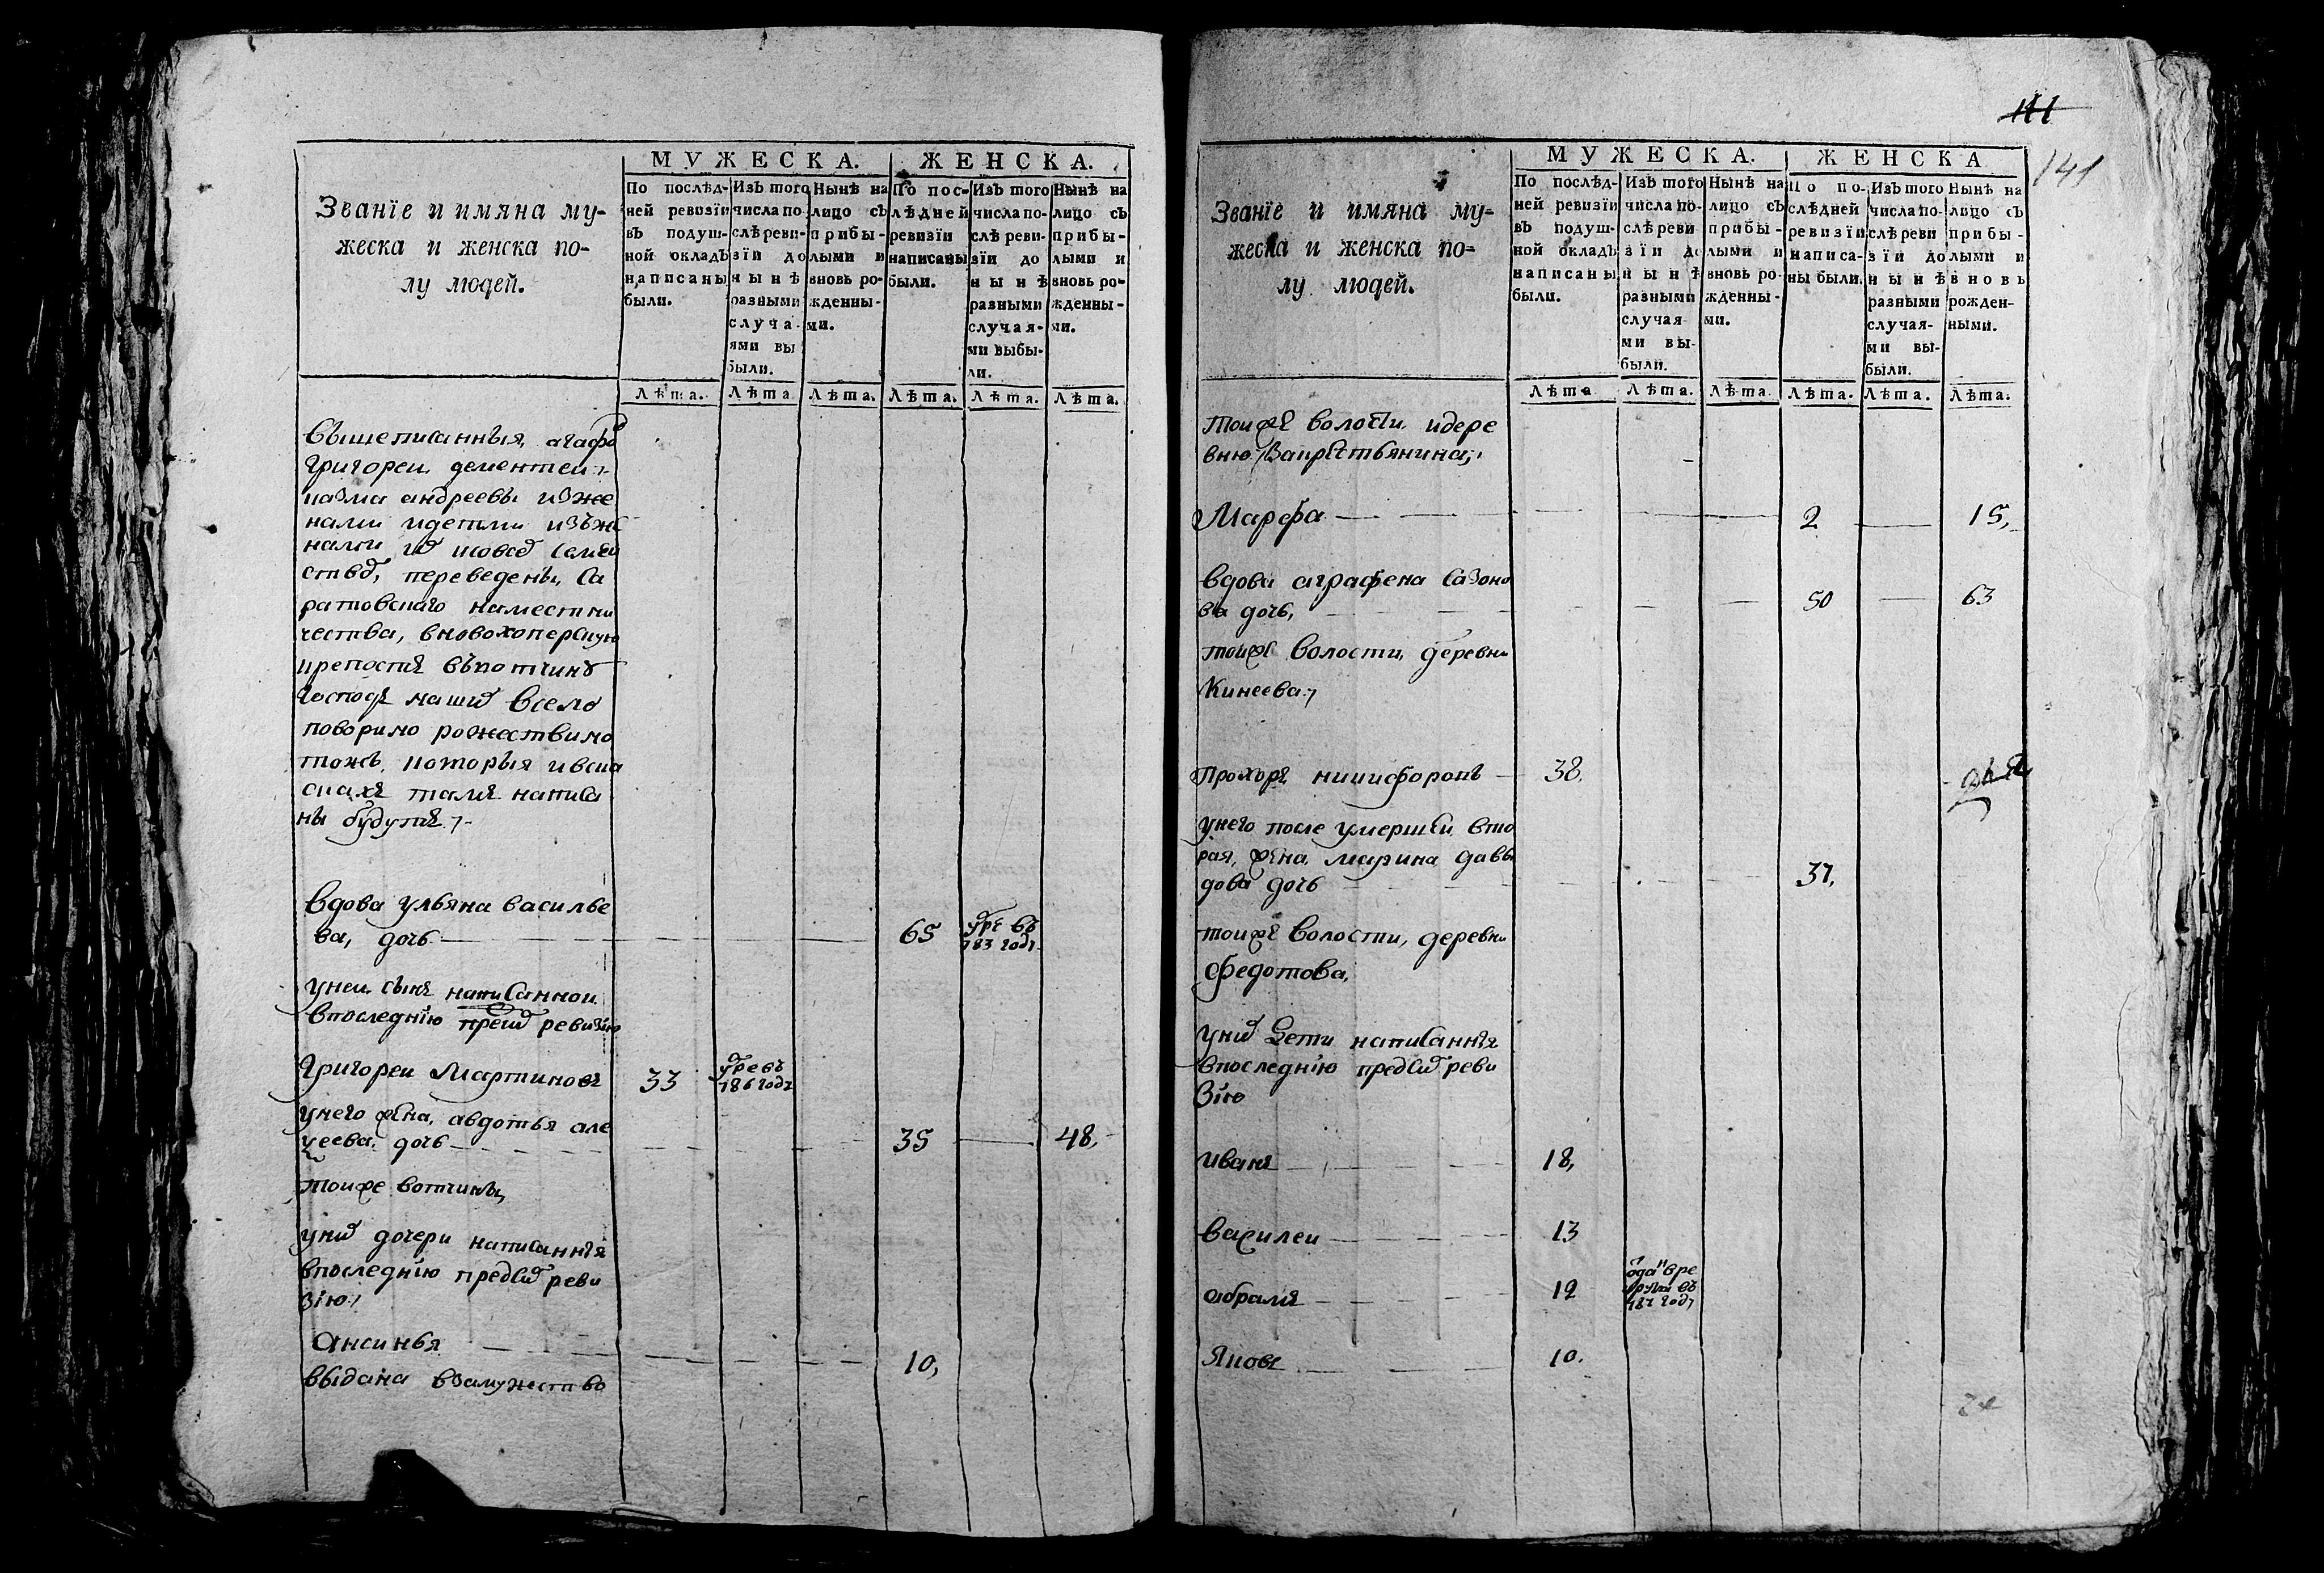 Званїе и имяна му-
жеска и женска по-
лу людей.
МУЖЕСКА.
ЖЕНСКА.
По послѣд-
ней ревизїи
въ подуш-
ной окладъ
написаны
были.
Изъ того
числа по-
слѣ реви-
зїи до
нынѣ
разными
случа-
ями вы
были.
Нынѣ на
лицо съ
прибы-
лыми и
вновь ро-
жденны-
ми.
По пос-
лѣдней
ревизїи
написаны
были.
Изъ того
числа по-
слѣ реви-
зїи до
нынѣ
разными
случая-
ми выбы-
ли.
Нынѣ на
лицо съ
прибы-
лыми и
вновь ро-
жденны-
ми.
Лѣта. Лѣта. Лѣта. Лѣта. Лѣта. Лѣта.
вышеписанныя, агафо
григореи дементеи
козма андреевы изже
нами идетми изъже
нами их исовсе семеи
ство, переведены, са
ратовскаго наместни
чества, вновохоперскую
крепость въвотчину
господъ нашихъ всело
поворино рожествино
тожъ, которыя ивска
скахъ тамъ написа
ны будутъ
вдова ульяна василье
ва, дочь 65 умре въ 783 году
унеи сынъ написаннои
впоследнїю пред ревизїю
Григореи Мартиновъ 33 умре въ 786 году
унего жена, авдотья але
ѯеева дочь 35 48,
тоиже вотчины,
уних дочери написанныя
впоследнїю предсих реви
зїю
аксинья 10,
выдана взамужество
111
141
Званїе и имяна му-
жеска и женска по-
лу людей.
МУЖЕСКА.
ЖЕНСКА
По послѣд-
ней ревизїи
въ подуш-
ной окладъ
написаны
были.
Изъ того
числа по-
слѣ реви
зїи до
нынѣ
разными
случая
ми вы-
были.
Нынѣ на
лицо съ
прибы-
лыми и
вновь ро-
жденны-
ми.
По по-
слѣдней
ревизїи
написа-
ны были.
Изъ того
числа по-
слѣ реви
зїи до
нынѣ
разными
случая-
ми вы-
были.
Нынѣ на
лицо съ
прибы-
лыми и
вновь
рожден-
ными.
Лѣта Лѣта. Лѣта Лѣта. Лѣта. Лѣта.
тоиже волости идере
вню закрестьянина,
Марфа 2 15,
вдова аграфена сазоно
ва дочь, 50 63
тоиже волости, деревни
Кинеева
Прохоръ никифоровъ 38.
унего после умершеи вто
рая, жена, марина давы
дова дочь 37,
тоиже волости, деревни
Федотова,
уних дети написанныя
впоследнїю предсих реви
зїю
иванъ 18,
василеи 13
абрамъ 12 отданъ в ре круты въ 787 году
Яковъ 10.